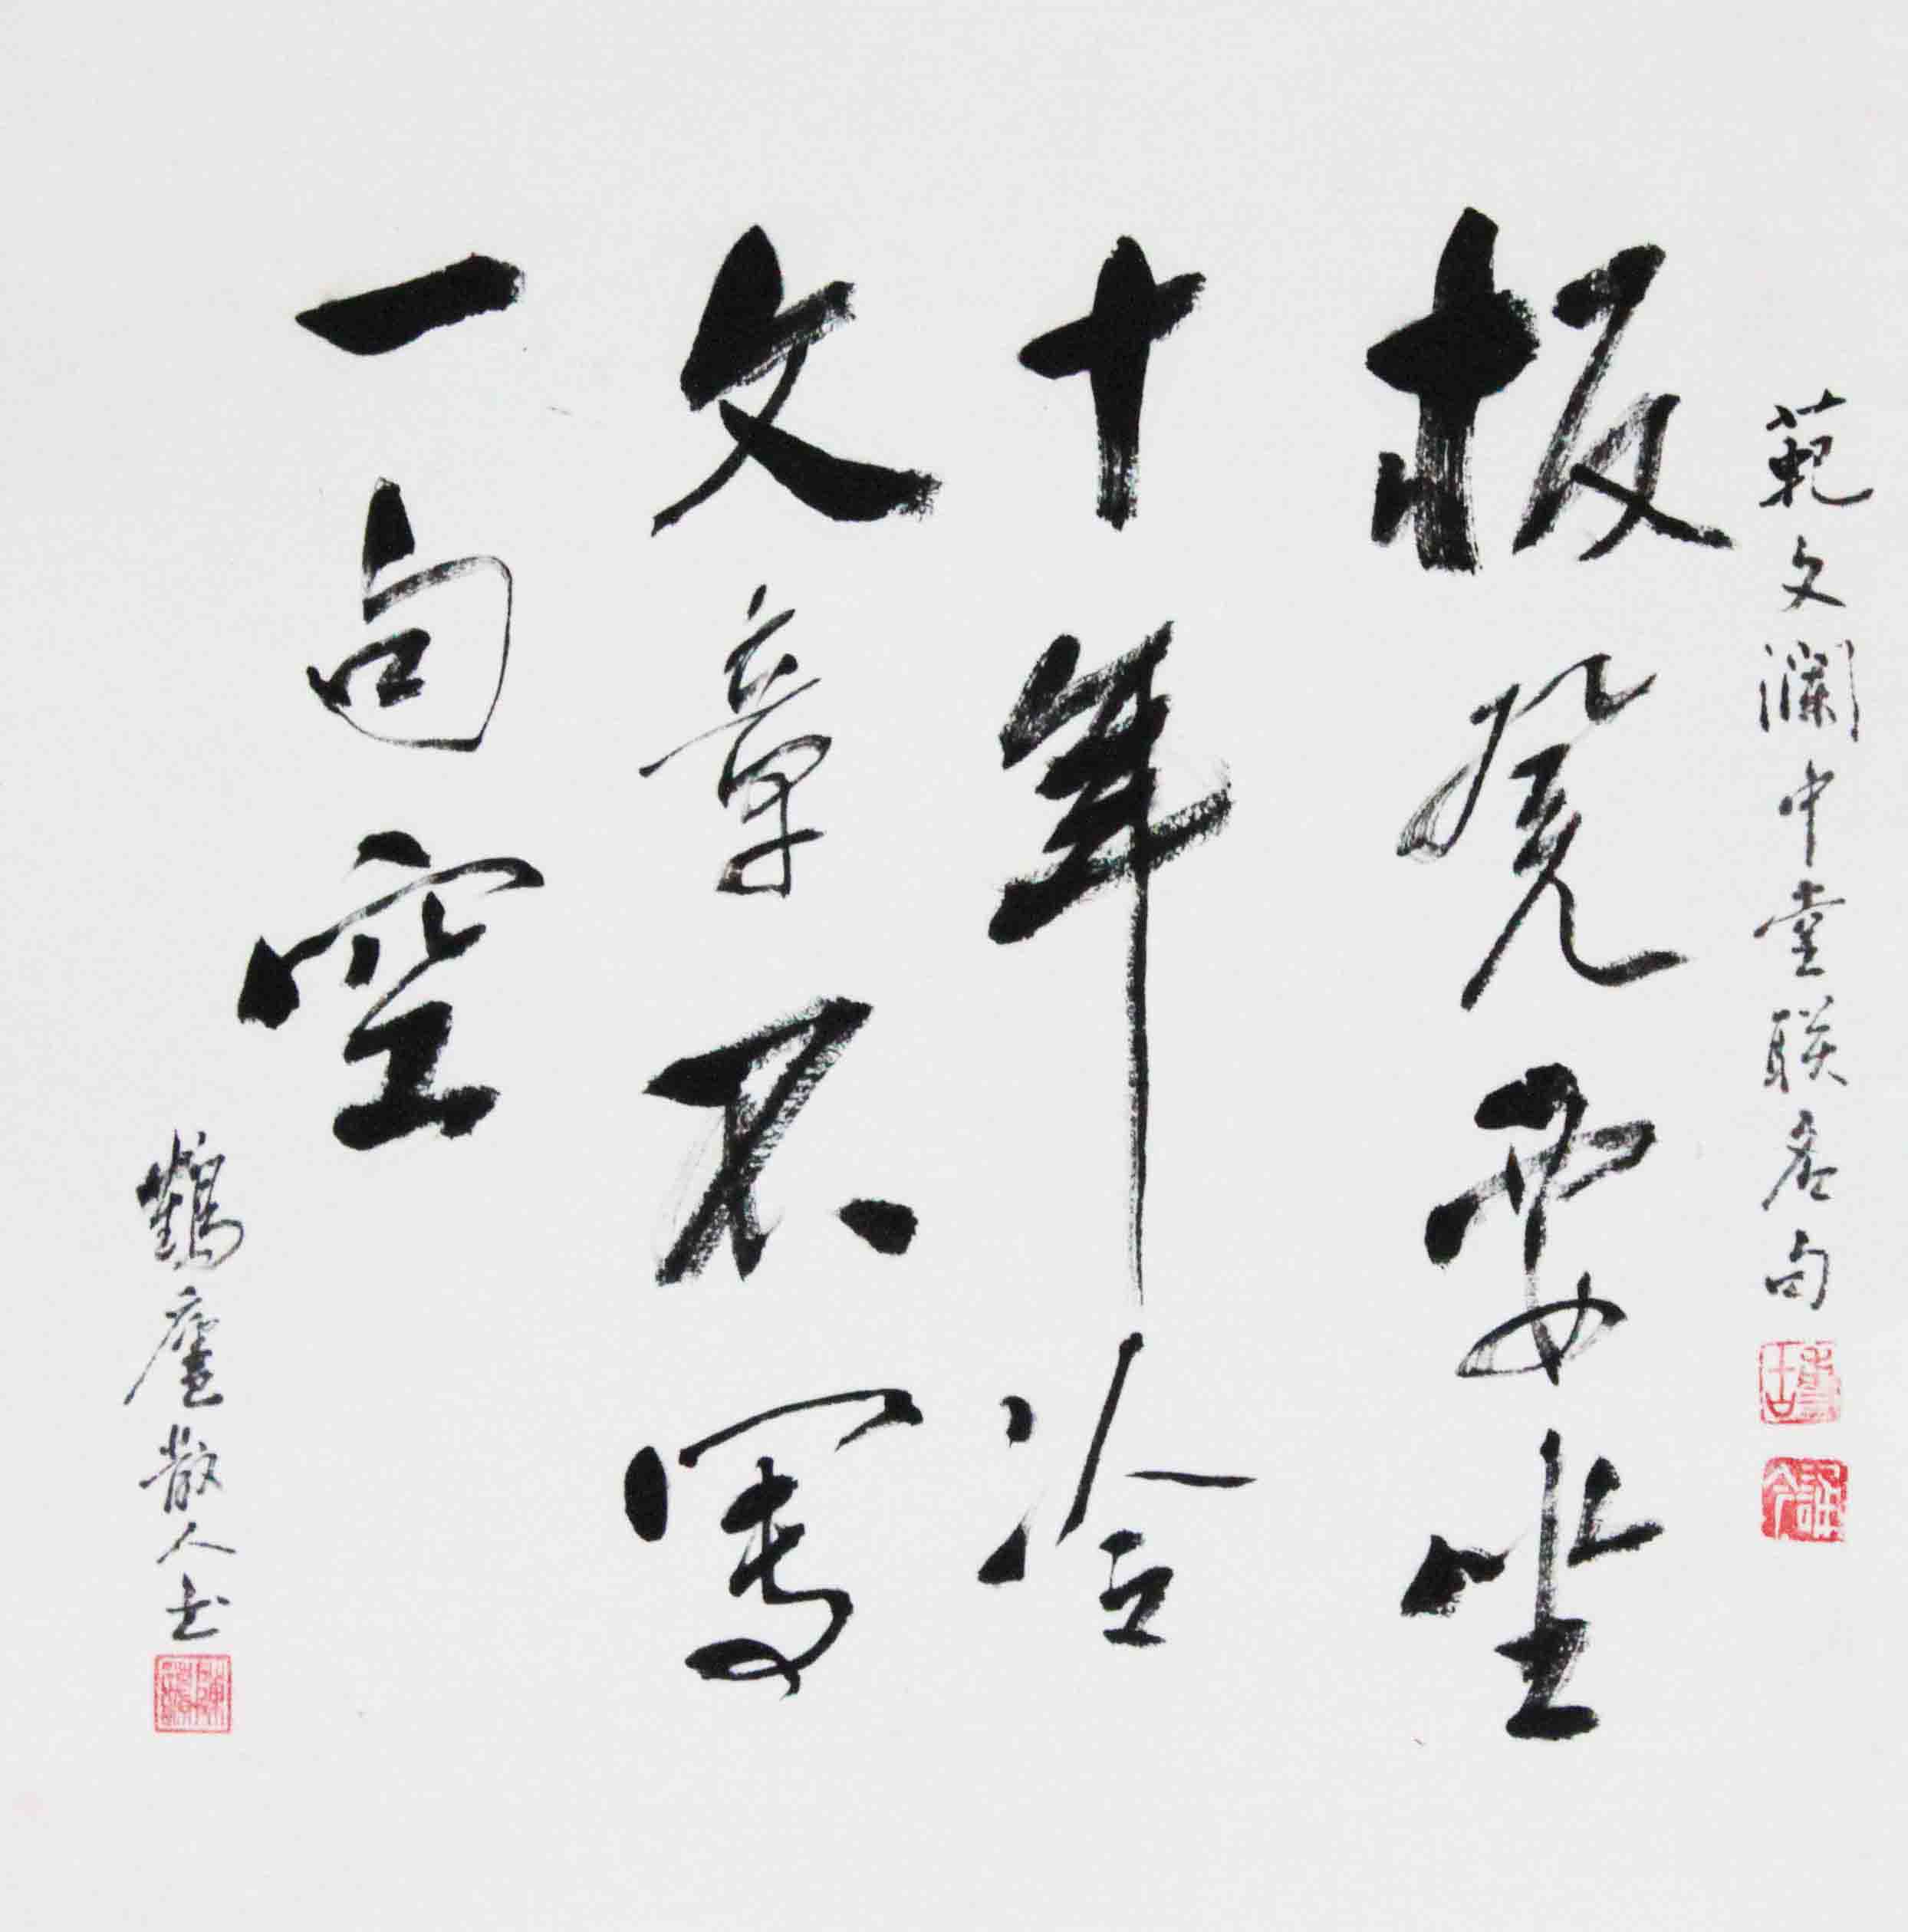 範文瀾中堂联名句
板凳要坐
十年冷
文章不寫
一句空
鶴廬散人书